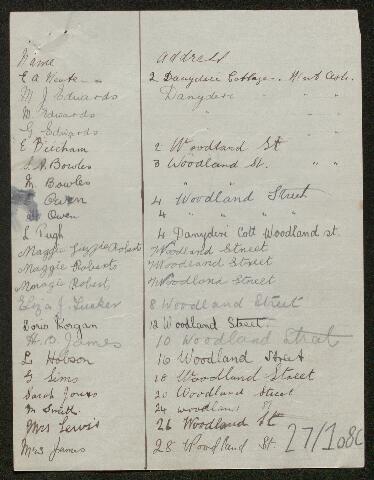 Name Address
E A 2 Danyderi Cottages. Mount Ash.
M J Edwards Danyderi " "
M Edwards " " "
G Edwards " " "
E Beecham 2 Woodland St
S. A. Bowles 3 Woodland St. " "
M. Bowles " " "
Owen 4 Woodland Street
Owen 4 " "
L Pugh 4 Danyderi Cott Woodland st.
Maggie Lizzie Robert 7 Woodland Street
Maggie Roberts 7 Woodland Street
Morage Robert 7 Woodland Street
Eliza J. Tucker 8 Woodland Street
Doris Morgan 12 Woodland Street.
H. B. James 10 Woodland Street
L Hobson 16 Woodland Street
G Sims 18 Woodland Street
Sarah Jones 20 Woodland Street
M Smith. 24 woodland St
Mrs Lewis 26 Woodland St
Mrs James 28 Woodland St.
27/1080